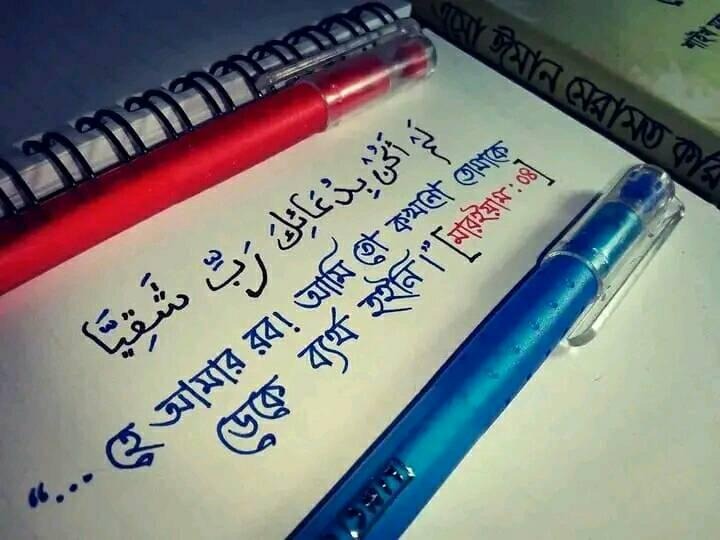 لَمْ أَكُنْ بِدُعَائِكَ رَبِّ شَقِيًّا
“... হে আমার রব! আমি তো কখনো তোমাকে
ডেকে ব্যর্থ হইনি।” [মারইয়াম : ০৪]
এসো ঈমান মেরামত করি